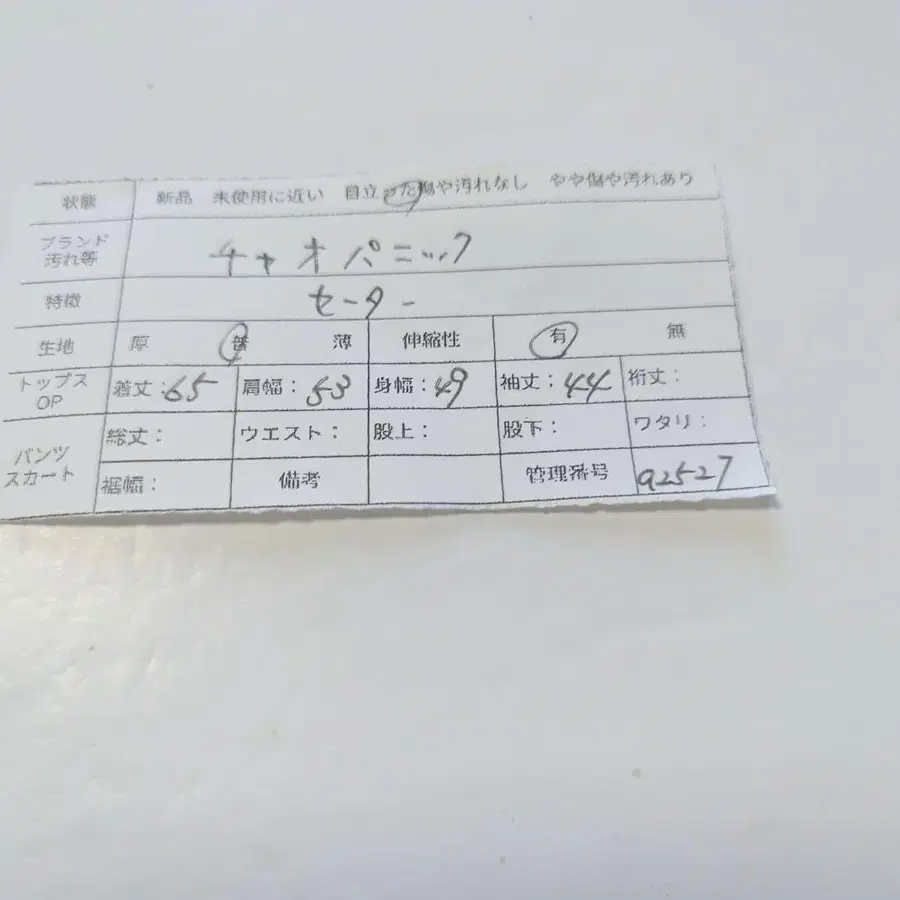 状態 新品 未使用に近い 目立った傷や汚れなし やや傷や汚れあり
ブランド 汚れ等 チャオパニック
特徴 セーター
生地 厚 普 薄 伸縮性 有 無
トップス OP 着丈:65 肩幅:53 身幅:49 袖丈:44 裄丈:
パンツ スカート 総丈: ウエスト: 股上: 股下: ワタリ:
裾幅: 備考 管理番号 a2527